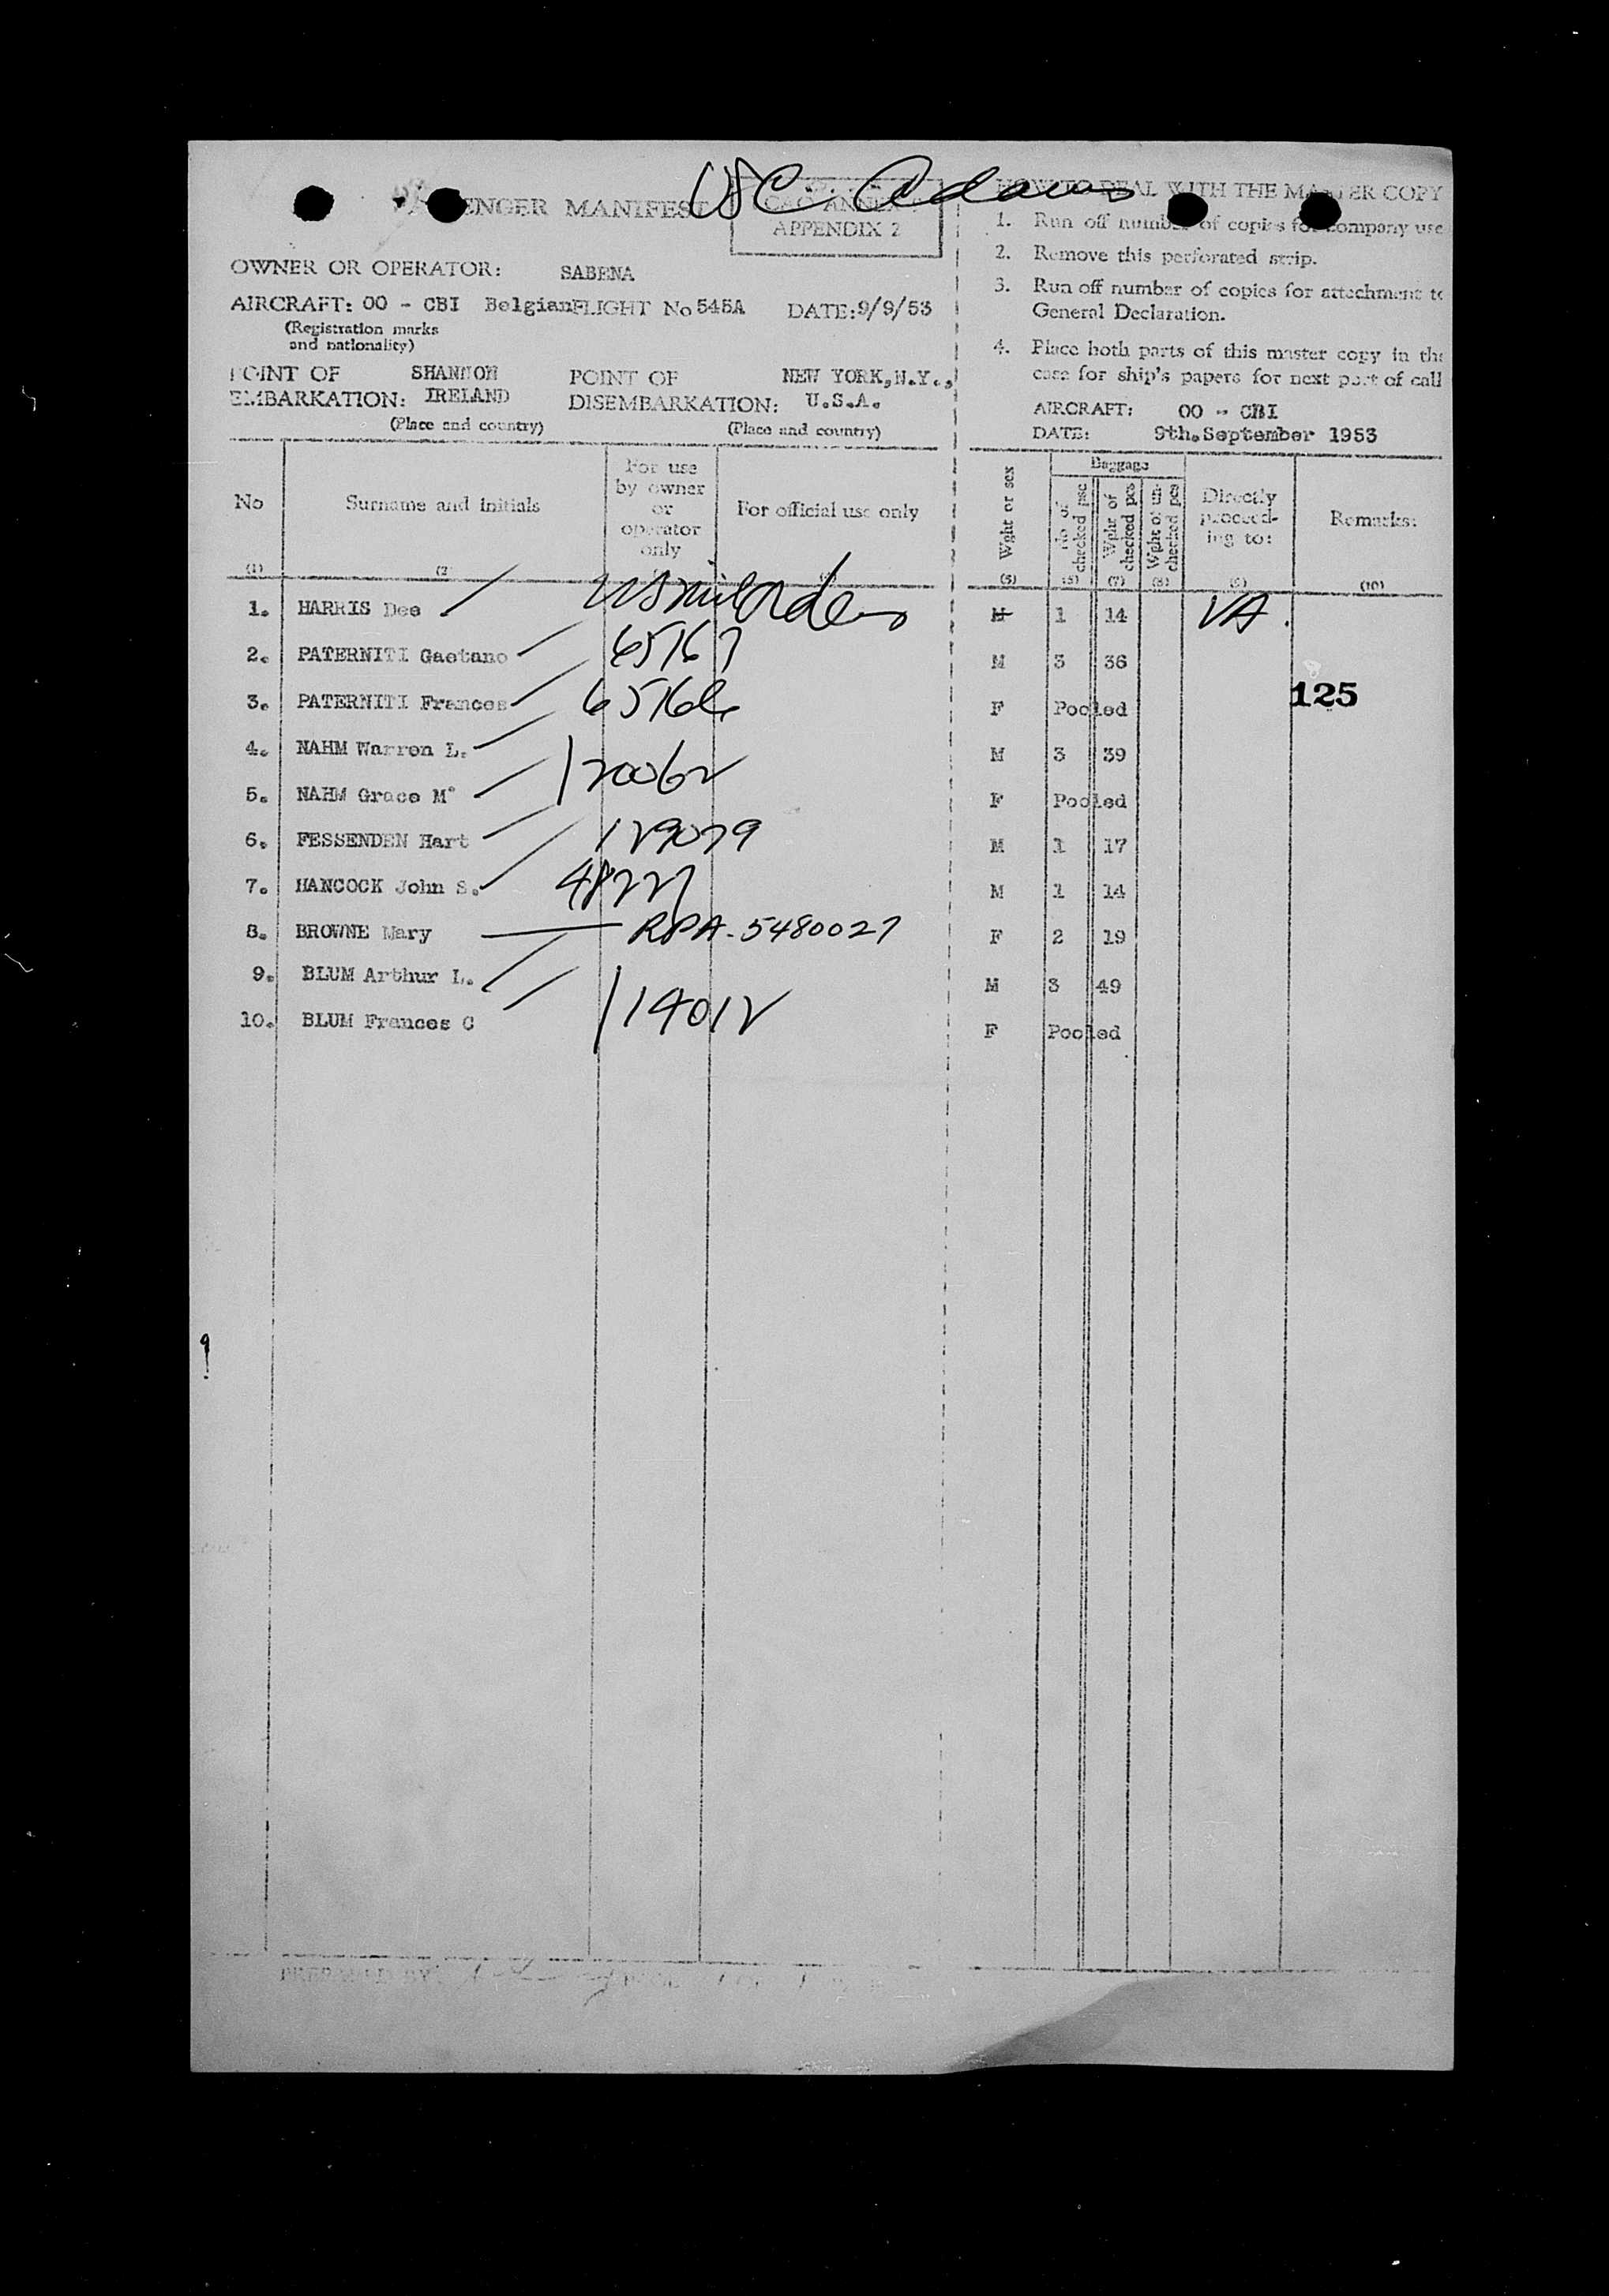 USC. Adams
PASSENGER MANIFEST
ICAO ANNEX 9
APPENDIX 2
OWNER OR OPERATOR: SABENA
AIRCRAFT: OO - CBI Belgian FLIGHT No 545A DATE: 9/9/53
(Registration marks
and nationality)
POINT OF SHANNON POINT OF NEW YORK, N.Y.,
EMBARKATION: IRELAND DISEMBARKATION: U.S.A.
(Place and country) (Place and country)
HOW TO DEAL WITH THE MASTER COPY
1. Run off number of copies for company use
2. Remove this perforated strip.
3. Run off number of copies for attachment to
General Declaration.
4. Place both parts of this master copy in the
case for ship's papers for next port of call
AIRCRAFT: OO - CBI
DATE: 9th. September 1953
No
Surname and initials
For use
by owner
or
operator
only
For official use only
Wght or sex
Baggage
No of
checked pcs
Wght of
checked pcs
Wght of un-
checked pcs
Directly
proceed-
ing to:
Remarks:
(1) (2 (5) (6) (7) (8) (9) (10)
1. HARRIS Dee US mil Orders M 1 14 VA.
2. PATERNITI Gaetano 65767 M 3 36
3. PATERNITI Frances F Pooled
125
4. NAHM Warren L. M 3 39
5. NAHM Grace M° 120062 F Pooled
6. FESSENDEN Hart 129079 M 1 17
7. HANCOCK John S. 48227 M 1 14
8. BROWNE Mary RPA-5480027 F 2 19
9. BLUM Arthur L. M 3 49
10. BLUM Frances C 114012 F Pooled
PREPARED BY: